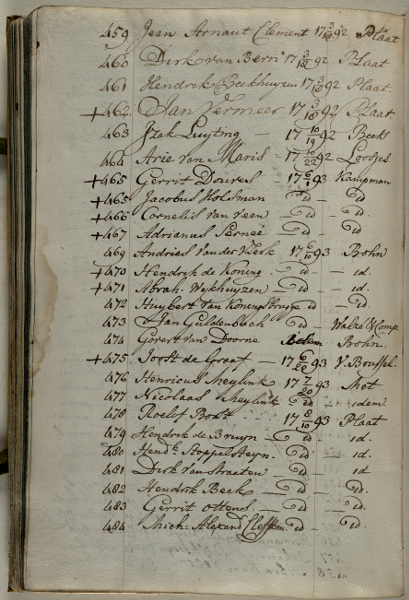 459 Jean Arnaut Clement 17 3/10 92 Plaat
460 Dirk van Bern 17 3/10 92 Plaat
461 Hendrik Beekhuyzen 17 3/10 92 Plaat.
+462. Jan Vermeer 17 3/10 92 Plaat
463 Izak Luyting — 17 10/19 92 Beeks
464 Arie van Maris — 17 10/22 92 Lootjes
+465 Gerrit Doures 17 6/1 93 Kampman
+465 Jacobus Holsman id — id.
+466 Cornelis van Veen — id — id.
+467 Adrianus Perneé — id — id.
469 Andries van der Werk 17 6/10 93 Brohn
+470 Hendrik de Koning — id — id.
+471 Abrah. Wykhuyzen — id — id.
472 Huybert van Konings brugge id — id.
473 Jan Guldenbach — id — Walré & Comp.
474 Govert van Doorne Brohn.
+475 Joost de Graaf — 17 6/20 93 V. Brussel.
476 Henricus 17 7/20 93
477 Nicolaas — id — idem.
478 Roelof 17 8/10 93 Plaat
479 Hendrik de Bruyn — id — id.
480 Hend. Stoppelsteyn. — id — id.
481 Dirk van Straaten — id — id
482 Hendrik Beek — id — id.
483 Gerrit Ottens — id — id.
484 Mich: Alexand — id — id.